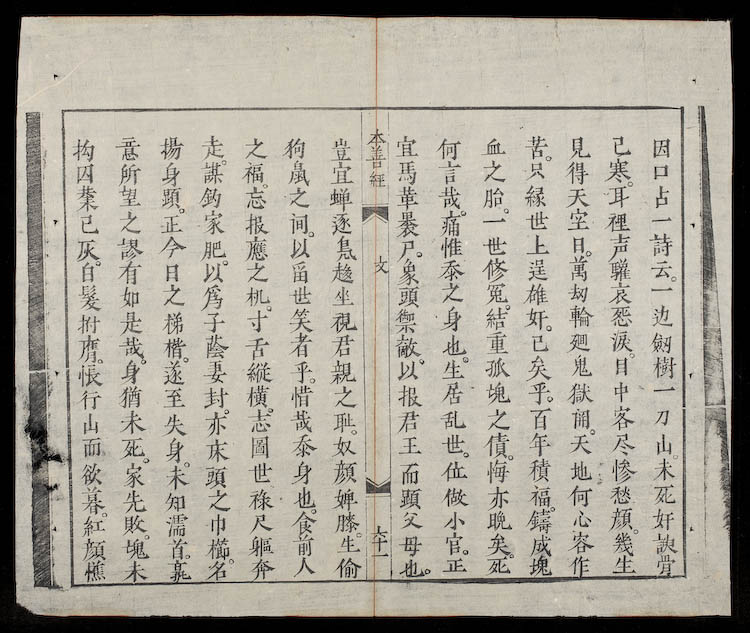 因口占一詩云。一边劔樹一刀山。未死奸諛骨
已寒。耳裡声讙哀怨淚。目中容尽慘愁顔。幾生
見得天空日。萬刼輪廻鬼獄閒。天地何心容作
苦。只縁世上逞雄奸。已矣乎。百年積福。鑄成塊
血之胎。一世修寃。結重孤塊之債。悔亦晚矣。死
何言哉。痛惟忝之身也。生居乱世。位做小官。正
宜馬革褁尸。象頭禦敵。以报君王而顕父母也。
本善經
攵
六十一
豈宜蝉逐鳬趍。坐視君親之耻。奴顔婢膝。生偷
狗鼠之间。以畄世笑者乎。惜哉忝身也。食前人
之福。忘报應之机。寸舌縱橫。志圖世祿。尺軀奔
走。謀釣家肥。以爲子蔭妻封。亦床頭之巾櫛。名
揚身顕。正今日之梯楷。遂至失身。未知濡首。
意所望之謬有如是哉。身猶未死。家先敗。塊未
拘囚業已灰。白髮拊膺。悵行山而欲暮。紅顔樵